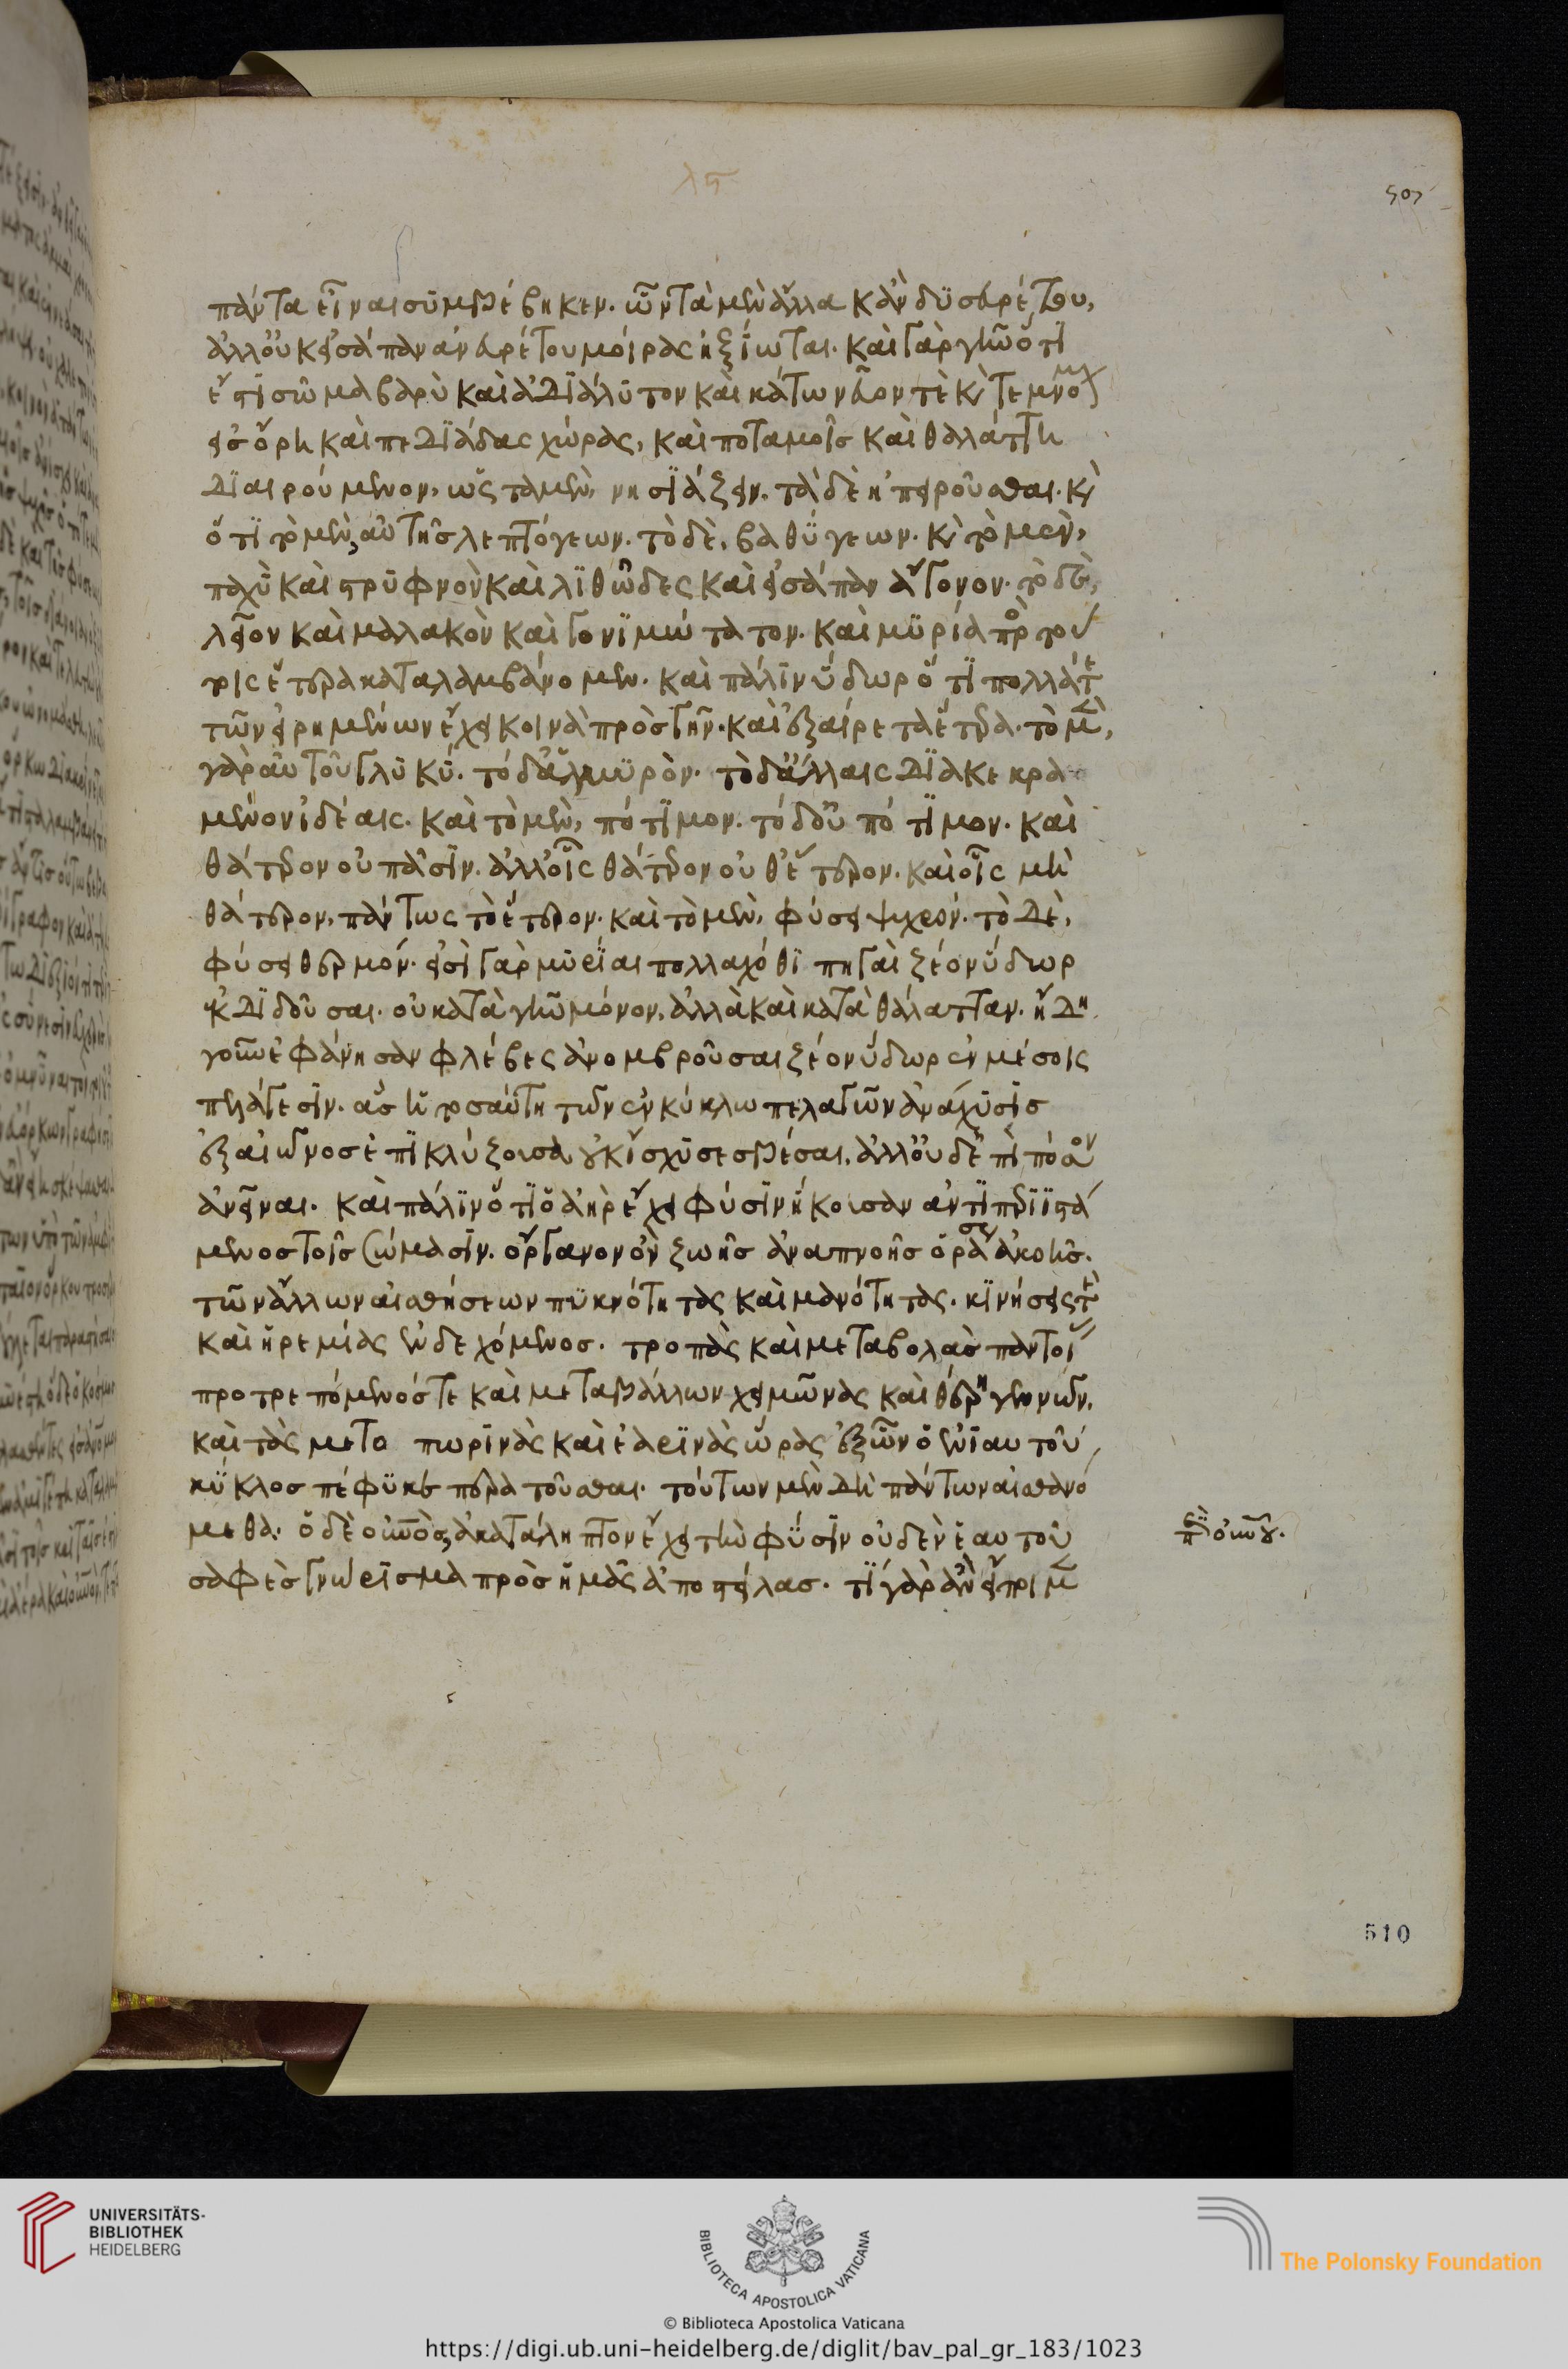 πάντα εἶναι συμβέβηκεν. ὧν τὰ μὲν ἄλλα κἂν δυσευρέτου,
ἀλλ' οὐκ εἰσάπαν ἀνευρέτου μοίρας ἠξίωται. καὶ γὰρ γῆν ὅτι
ἔστι σῶμα βαρὺ καὶ ἀδιάλυτον καὶ κάτω νεῦον τὲ κ(αὶ) τεμνόμ(ενον)
εἰσ ὄρη καὶ πεδιάδας χώρας, καὶ ποταμοῖσ καὶ θαλάττη
διαιρούμενον, ὡς τὰ μὲν, νησιάζειν. τὰ δὲ ἠπειροῦσθαι. κ(αὶ)
ὅτι τὸ μὲν, αὐτῆσ λεπτόγεων. τὸ δὲ, βαθύγεων. κ(αὶ) τὸ μὲν,
παχὺ καὶ στρυφνὸν καὶ λιθῶδες καὶ εἰσάπαν ἄγονον. τὸ δὲ,
λεῖον καὶ μαλακὸν καὶ γονιμώτατον. καὶ μυρία πρὸς τού
τοις ἕτερα καταλαμβάνομεν. καὶ πάλιν ὕδωρ ὅτι πολλά τε
τῶν εἰρημένων ἔχει κοινὰ πρὸς γῆν. καὶ ἐξαίρετα ἕτερα. τὸ μὲν,
γὰρ αὐτοῦ γλυκύ. τὸ δ' ἁλμυρὸν. τὸ δ' ἄλλαις διακεκρα
μένον ἰδέαις. καὶ τὸ μὲν, πότιμον. τὸ δ' οὐ πότιμον. καὶ
θάτερον οὐ πᾶσιν. ἀλλ' οἷς θάτερον οὐ θ' ἕτερον. καὶ οἷς μὴ
θάτερον, πάντως τὸ ἕτερον. καὶ τὸ μὲν, φύσει ψυχρόν. τὸ δὲ,
φύσει θερμόν. εἰσὶ γὰρ μυρίαι πολλαχόθι πηγαὶ ζέον ὕδωρ
ἐκδιδοῦσαι. οὐ κατὰ γῆν μόνον, ἀλλὰ καὶ κατὰ θάλατταν. ἤδη
γοῦν ἐφάνησαν φλέβες ἀνομβροῦσαι ζέον ὕδωρ ἐν μέσοις
πελάγεσιν. ἃς ἡ τοσαύτη τῶν ἐν κύκλω πελαγῶν ἀνάχυσις
ἐξ αἰῶνοσ ἐπικλύζουσα οὐκ ἴσχυσε σβέσαι. ἀλλ' οὐδ' ἐπὶ ποσὸν
ἀνεῖναι. καὶ πάλιν ὅτι ὁ ἀὴρ ἔχει φύσιν ἥκουσαν ἀντιπεριϊστά
μενοσ τοῖσ σώμασιν. ὄργανον ὢν ζωῆσ ἀναπνοῆσ ὁράσεως ἀκοῆσ.
τῶν ἄλλων αἰσθήσεων πυκνότητας καὶ μανότητας. κινήσεις τὲ
καὶ ἠρεμίας ἐνδεχόμενοσ. τροπὰς καὶ μεταβολὰσ παντοί(ας)
προτρεπόμενόσ τε καὶ μεταβάλλων χειμῶνας καὶ θέρη γεννῶν.
καὶ τὰς μετοπωρινὰς καὶ ἐαρινὰς ὥρας ἐξ ὧν ὁ ἐνιαυτοῦ
κύκλοσ πέφυκε περατοῦσθαι. τούτων μὲν δὴ πάντων αἰσθανό
μεθα. ὁ δὲ οὐ(ρα)νὸς, ἀκατάληπτον ἔχει τὴν φύσιν οὐδὲν ἑαυτοῦ
σαφὲσ γνώρισμα πρὸσ ἡμᾶς ἀποστείλασ. τί γὰρ ἂν εἴποιμ(εν)
π(ερὶ) οὐ(ρα)νοῦ.
λς
507
510
UNIVERSITÄTS-
BIBLIOTHEK
HEIDELBERG
BIBLIOTECA APOSTOLICA VATICANA
The Polonsky Foundation
© Biblioteca Apostolica Vaticana
https://digi.ub.uni-heidelberg.de/diglit/bav_pal_gr_183/1023